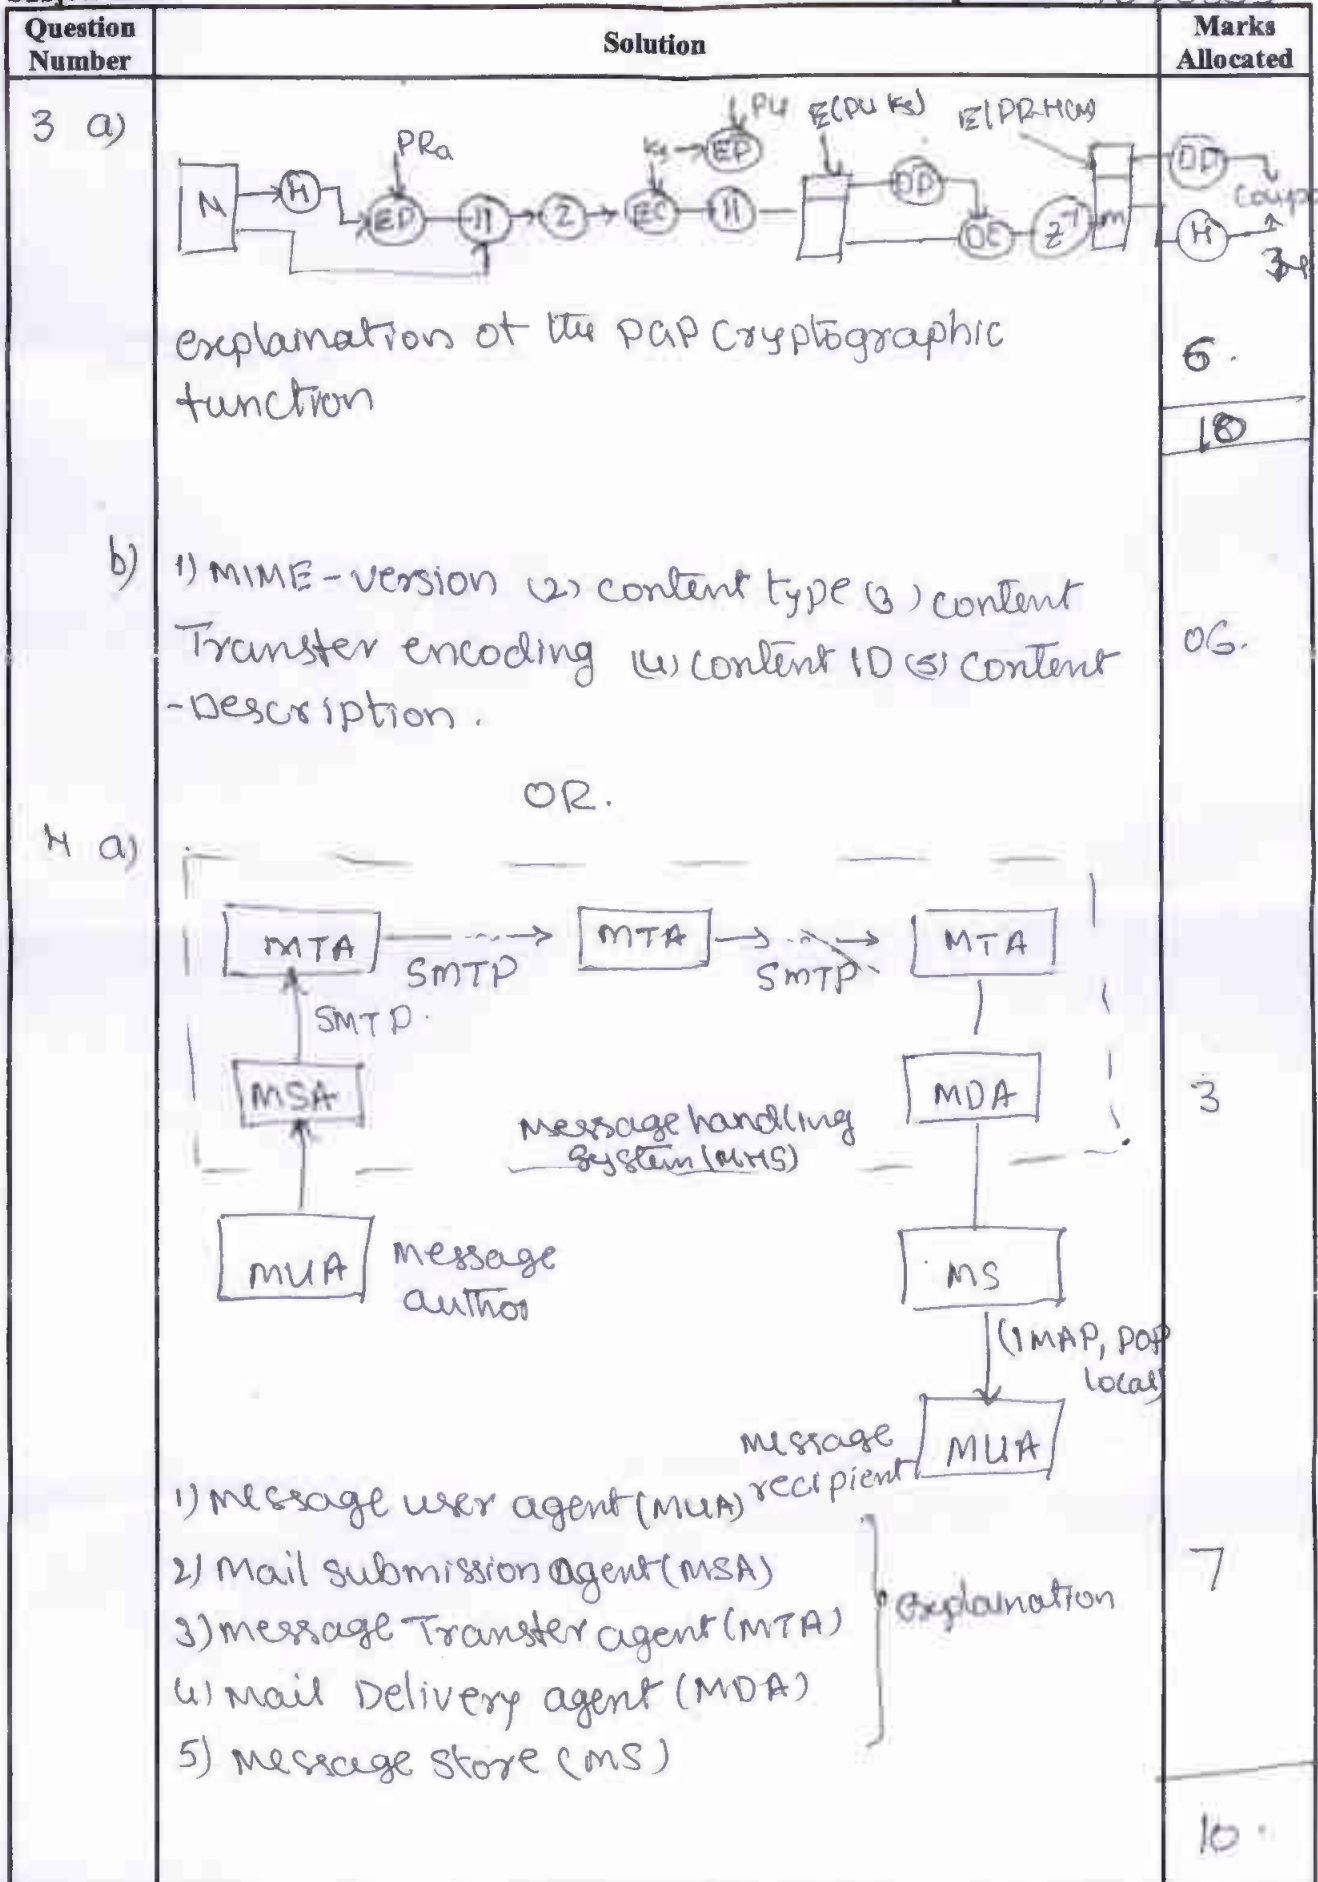 Question Number
Solution
Marks Allocated
3 a)
PRa
Ks
PU
E(PU Ks)
M H EP || Z EC EP ||
DP DC Z⁻¹ m DP H
explaination of the PGP Cryptographic
function
6.
10
b)
1) MIME-version (2) content type (3) content
Transfer encoding (4) content ID (5) content
-Description.
06.
OR.
4 a)
MTA SMTP MTA SMTP MTA
SMTP.
MSA
MDA
3
Message handling
System (MHS)
MUA
message
author
MS
(IMAP, POP
local)
message
recipient
MUA
1) message user agent (MUA)
2) Mail submission agent (MSA)
3) message Transfer agent (MTA)
4) Mail Delivery agent (MDA)
5) Message store (MS)
explaination
7
10.